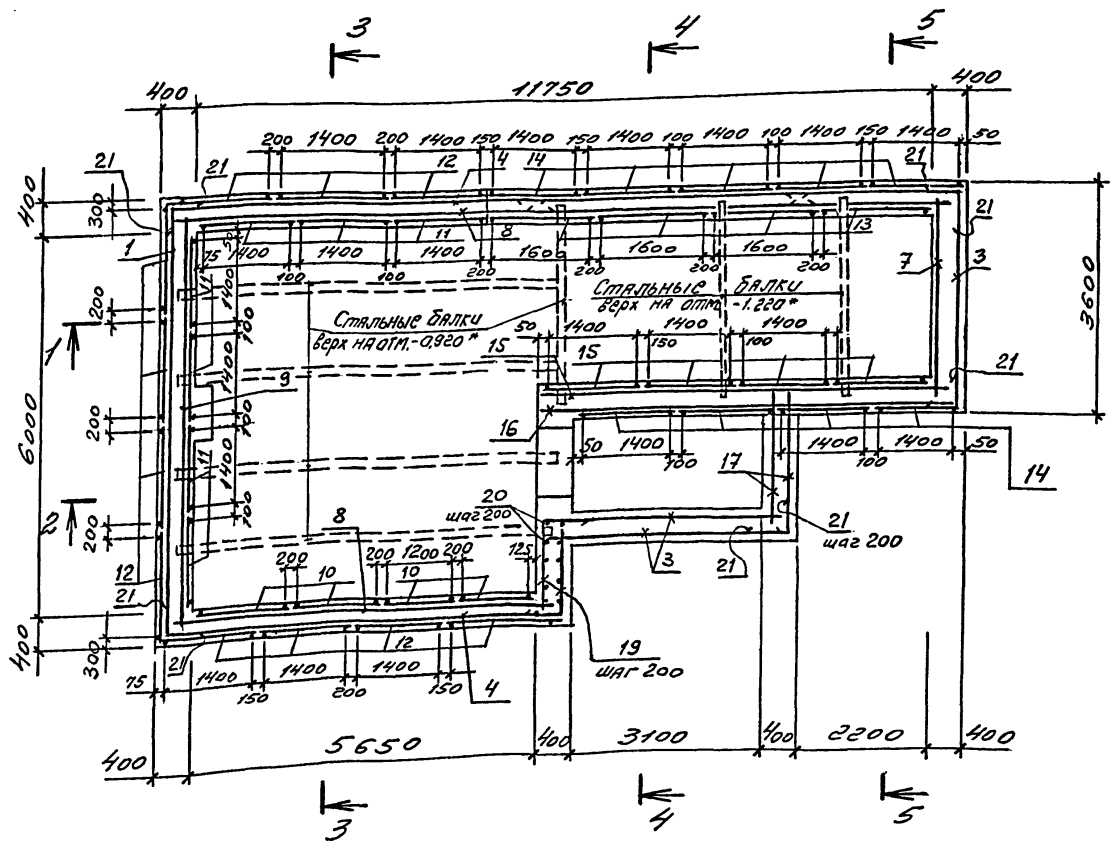 3 4 5
400 11750 400
200 1400 200 1400 150 1400 150 1400 100 1400 100 1400 150 1400 50
21 21 12 4 14 21
400 300
1 11 8 13 21
75 1400 1400 1400 1600 1600 1600
50 100 100 200 200 200 200
7 3
3600
Стальные балки
верх на отм. -0,920*
Стальные балки
верх на отм. -1.220*
11 1400 100
200
1
9
1400 100
50 1400 1400 1400
150 100
15 15 21
6000
200
16
50 1400 100 1400 100 1400 50
14
17
11 1400 100
2
200
8
20
шаг 200
21
шаг 200
3 21
200 200 1200 200 125
10 10
12
21
400 300
21 12
19
шаг 200
75 1400 1400 1400
150 200 150
4
400 5650 400 3100 400 2200 400
3 4 5